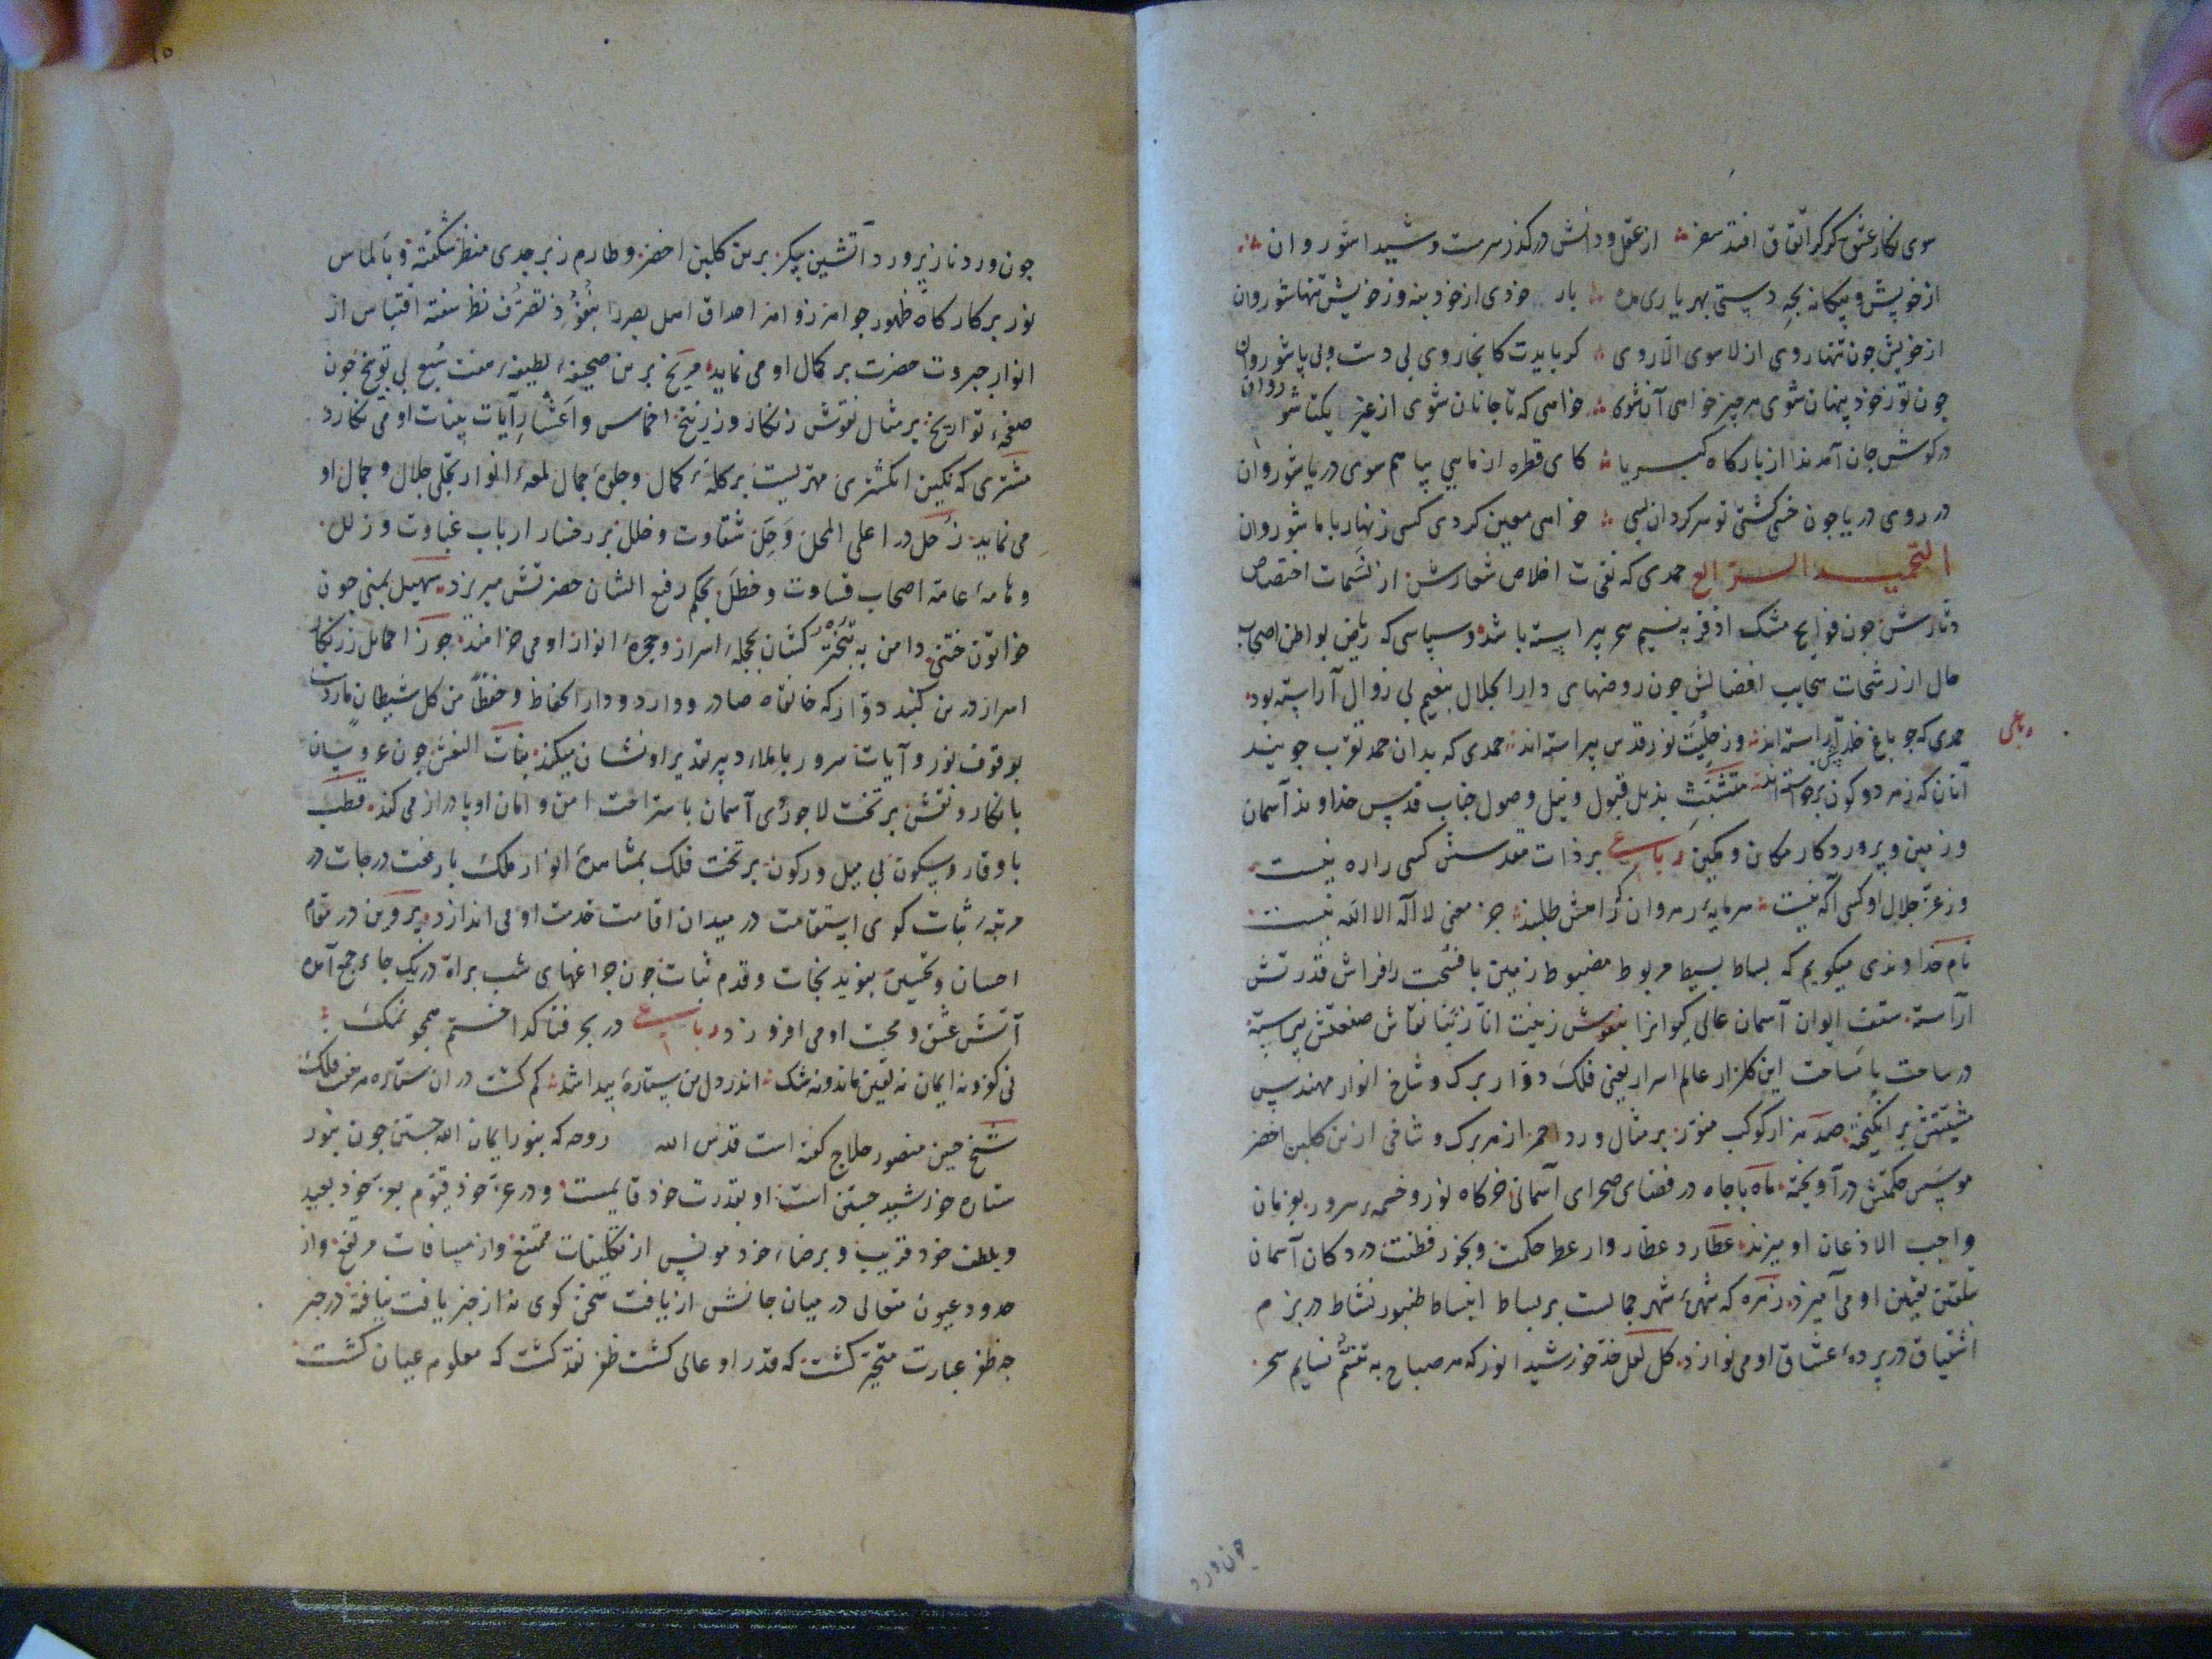 سوی نکار عشق کر کر اتفاق افتد سفر از عقل و دانش در کذر سرمست و شیدا شو روان
از خویش و بیکانه بجه دستی بهر یاری مده بار خودی از خود بنه وز خویش تنها شو روان
از خویش جون تنها روی از لا سوی الا روی کر بایدت کانجا روی بی دست و بی پا شو روان
جون تو ز خود پنهان شوی هر چیز خواهی آن شوی خواهی که تا جانان شوی از غیر یکتا شو روان
در کوش جان آمد ندا از بارکاه کبریا کای قطره از مایی بیا هم سوی دریا شو روان
در روی دریا جون خسی کشتی تو سرکردان بسی خواهی معین کردی کسی زنهار با ما شو روان
التحمید الرابع حمدی که نفحات اخلاص شعارش از نسمات اختصاص
دثارش جون فوایح مشک اذفر به نسیم سحر پیراسته باشد و سپاسی که ریاض بواطن اصحاب
حال از رشحات سحایب افضالش جون روضهای دار الجلال بنعیم بی زوال آراسته بود
رباعی
حمدی که جو باغ خلد آراسته اند وز نور قدس پیراسته اند حمدی که بدان حمد تقرب جویند
آنان که ز هر دو کون برخواسته اند متشبث بذیل قبول و نیل وصول جناب قدس خداوند آسمان
و زمین و پروردکار مکان و مکین رباعی بر ذات مقدسش کسی را ره نیست
وز عز جلال او کسی آکه نیست سرمایه رهروان که راهش طلبند جز معنی لا اله الا الله نیست
نام خداوندی میکویم که بساط بسیط مربوط مضبوط زمین با فسحت را فراش قدرتش
آراسته سقف ایوان آسمان عالی کیوانرا بنقوش زینت انا زینا نقاش صنعتش پیراسته
در ساحت با مساحت این کلزار عالم اسرار یعنی فلک دوار برک و شاخ انوار مهندس
مشیتش بر انکیخته صد هزار کوکب منور بر مثال ورد احمر از هر برک و شاخی ازین کلبن اخضر
موسس حکمتش در آویخته ماه با جاه در فضای صحرای آسمانی خرکاه نور و خیمه سرور بفرمان
واجب الاذعان او میزند عطارد عطار وار عطر حکمت و بخور فطنت در دکان آسمان
تلقین یقین او می آمیزد زهره که شهره شهر جمالست بر بساط انبساط طنبور نشاط در بزم
اشتیاق در پرده عشاق او می نوازد کل لعل خد خورشید انور که هر صباح به تنسم نسایم سحر
جون ورد
جون ورد ناز پرورد آتشین پیکر برین کلبن اخضر و طارم زبرجدی منظر شکفته و بالماس
نور بر کارکاه ظهور جواهر زواهر احداق اهل بصر را بنفوذ تصرف نظر سفته اقتباس از
انوار جبروت حضرت بر کمال او می نماید مریخ برین صحیفه لطیفه هفت سبع بی توبیخ جون
صفحه تواریخ بر مثال نقوش زنکار و زرنیخ اخماس و اعشار آیات بینات او می نکارد
مشتری که نکین انکشتری مهتریست بر کله کمال و جلوه جمال لمعه انوار تجلی جلال و جمال او
می نماید زحل در اعلی المحل وحل شقاوت و خلل بر رخسار ارباب غباوت و زلل
و هامه عامه اصحاب قساوت و خطل بحکم رفیع الشان حضرتش میریزد سهیل یمنی جون
خواتون ختنی دامن به تبختر کشان بحجله اسرار و حجره انوار او می خرامد جوزا حمایل زرنکار
اسرار درین کنبد دوار که خانقاه صادر و وارد و دار الحفاظ و حفظا من کل شیطان مارد است
بوقوف نور و آیات سرور باملاء دبیر تقدیر او نشان میکند بنات النعش جون عروسان
با نکار و نقش بر تخت لاجوردی آسمان باستراحت امن و امان او پا دراز می کند قطب
با وقار و سکون بی میل و رکون بر تخت فلک بمشاهده انوار ملک با رفعت درجات در
مرتبه ثبات کوی استقامت در میدان اقامت خدمت او می اندازد پروین در مقام
احسان و تحسین بنوید نجات و قدم ثبات جون جراغهای شب براه در یک جا جمع آمده
آتش عشق و محبت او می افروزد رباعی در بحر فنا کداختم همجو نمک
نی کفر و نه ایمان نه یقین ماند و نه شک اندر دل من ستاره پیدا شد کم کشت دران ستاره هر هفت فلک
شیخ حسین منصور حلاج کفته است قدس الله روحه که بنور ایمان الله جستن جون بنور
ستاره خورشید جستن است او بقدرت خود قایمست و در عز خود قیوم بعز خود بعید
و بلطف خود قریب و برضاء خود مونس از تکلیفات ممتنع و از مسافات مرتفع و از
حدود عیون متعالی در میان جانش از یافت سخن کوی نه از خبر یافت نیافته در خبر
نه طرز عبارت متحیر کشت که قدر او عالی کشت طرز نقد کشت که معلوم عیان کشت